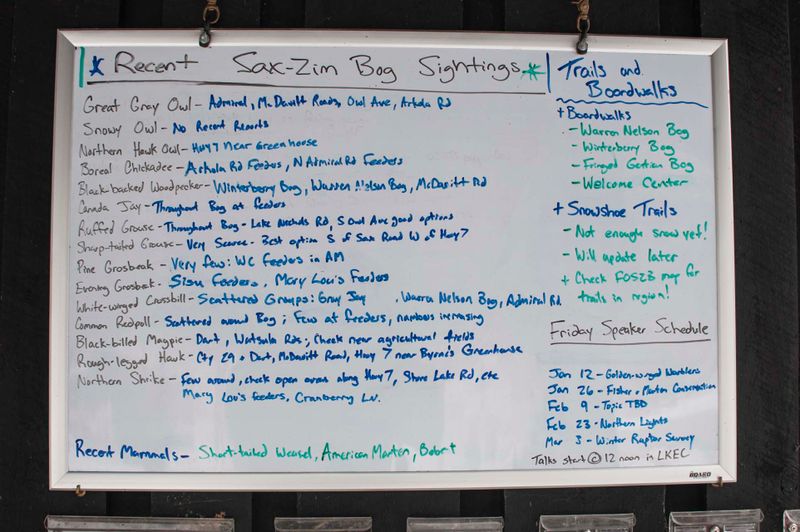 * Recent Sax-Zim Bog Sightings *
Great Gray Owl - Admiral, McDavitt Roads, Owl Ave, Arkola Rd
Snowy Owl - No Recent Reports
Northern Hawk Owl - Hwy 7 Near Greenhouse
Boreal Chickadee - Arkola Rd Feeders, N Admiral Rd Feeders
Black-backed Woodpecker - Winterberry Bog, Warren Nelson Bog, McDavitt Rd
Canada Jay - Throughout Bog at feeders
Ruffed Grouse - Throughout Bog - Lake Nichols Rd, S Owl Ave good options
Sharp-tailed Grouse - Very Scarce - Best option S of Sax Road W of Hwy 7
Pine Grosbeak - Very few: WC feeders in AM
Evening Grosbeak - Sisu Feeders, Mary Lou's Feeders
White-winged Crossbill - Scattered Groups: Gray Jay , Warren Nelson Bog, Admiral Rd
Common Redpoll - Scattered around Bog; Few at feeders, numbers increasing
Black-billed Magpie - Dart, Watsula Rds; Check near agricultural fields
Rough-legged Hawk - Cty 29 + Dart, McDavitt Road, Hwy 7 near Byrne's Greenhouse
Northern Shrike - Few around, check open areas along Hwy 7, Stone Lake Rd, etc
Mary Lou's feeders, Cranberry Ln.
Recent Mammals - Short-tailed Weasel, American Marten, Bobcat
Trails and
Boardwalks
+ Boardwalks
- Warren Nelson Bog
- Winterberry Bog
- Fringed Gentian Bog
- Welcome Center
+ Snowshoe Trails
- Not enough snow yet!
- Will update later
+ Check FOSZB map for
trails in region!
Friday Speaker Schedule
Jan 12 - Golden-winged Warblers
Jan 26 - Fisher + Marten Conservation
Feb 9 - Topic TBD
Feb 23 - Northern Lights
Mar 3 - Winter Raptor Survey
Talks start @ 12 noon in LKEC
BOARD